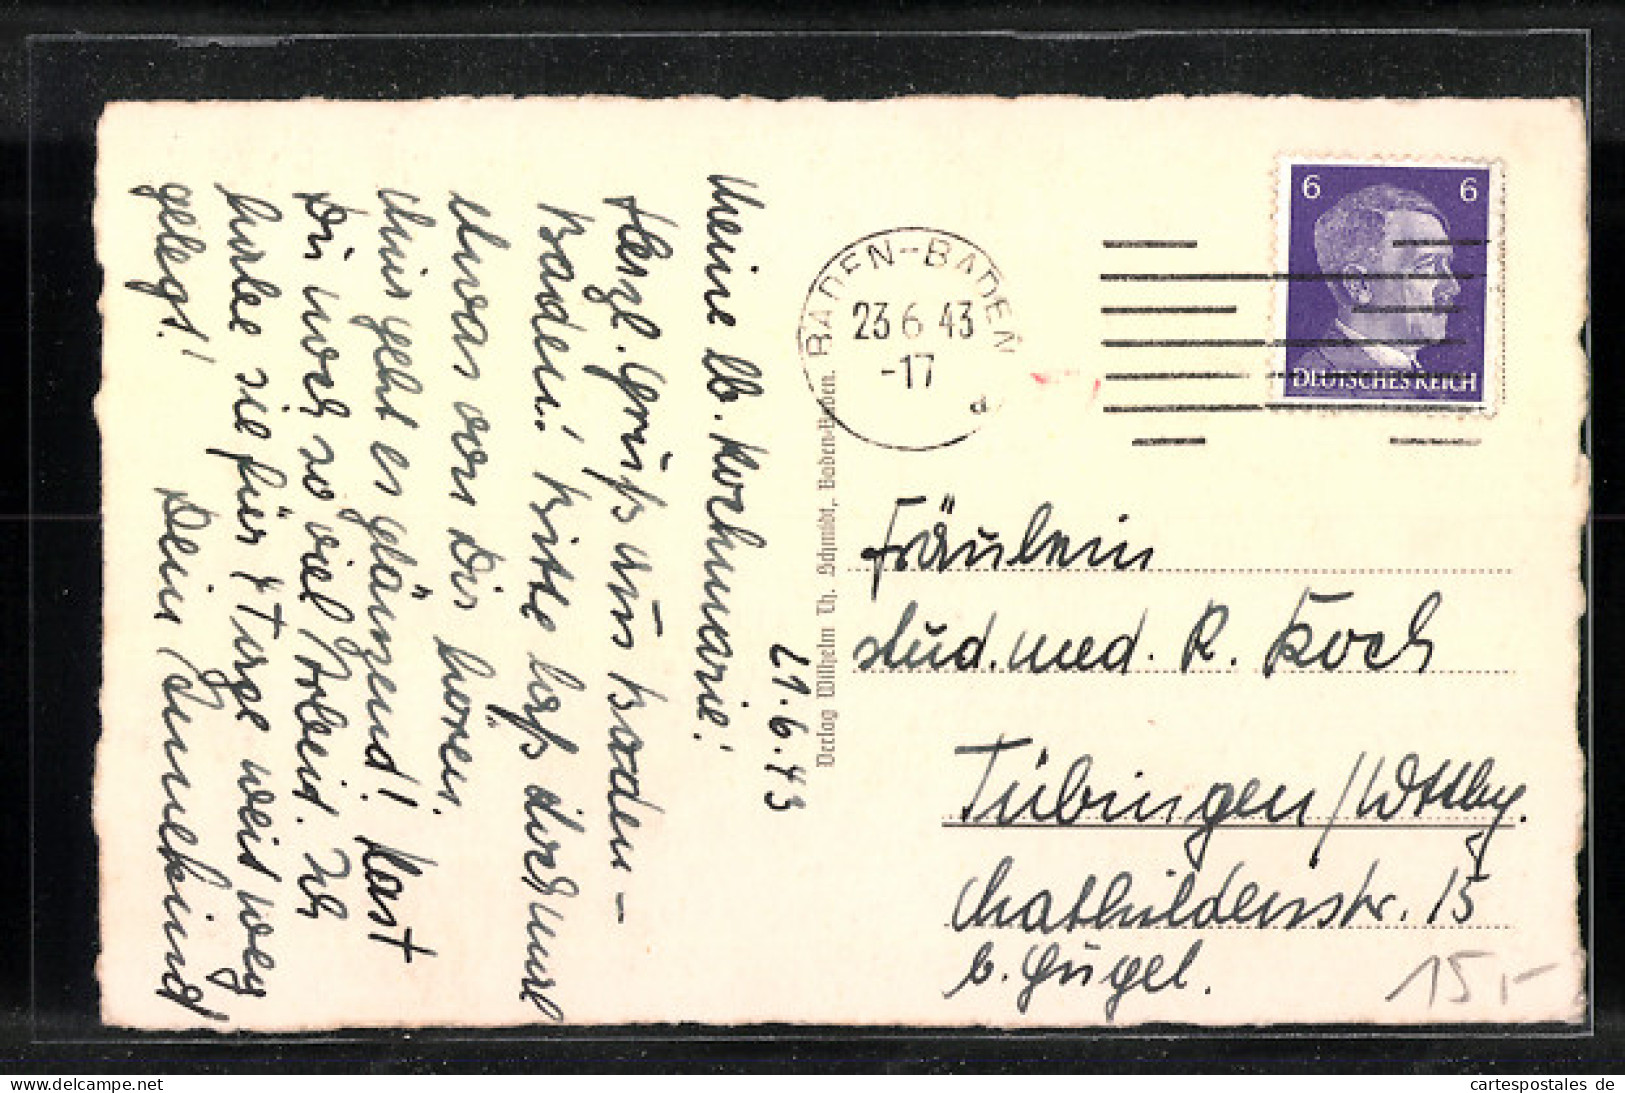 21.6.43
Meine lb. Kochmarie!
Herzl. Gruß aus Baden-
Baden! Bitte laß doch mal
etwas von Dir hören.
Mir geht es glänzend! Hast
Du noch so viel Arbeit. Ich
habe sie für 4 Tage weit weg
gelegt! Dein
Verlag Wilhelm Th. Schmidt, Baden-Baden.
BADEN-BADEN
23 6 43
-17
d
6 6
DEUTSCHES REICH
Fräulein
stud. med. R. Koch
Tübingen/Wttbg.
Mathildenstr. 15
b. Gugel.
15,-
delcampe.net
cartespostales de